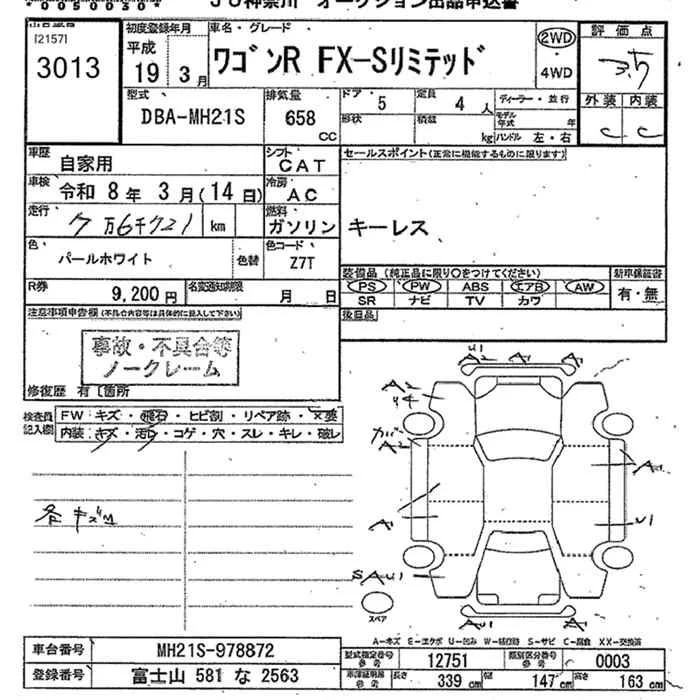 *00500304*
JU神奈川 オークション出品申込書
[2157]
3013
初度登録年月
平成
19年 3月
車名・グレード
ワゴンR FX-Sリミテッド
2WD
・
4WD
評価点
3.5
外装 内装
C C
型式
DBA-MH21S
排気量
658
CC
ドア
5
定員
4 人
形状
積載
kg
ディーラー・並行
モデル年式 年
ハンドル 左・右
車歴
自家用
シフト
CAT
車検
令和 8年 3月(14日)
冷房
AC
走行
7万6千721 km
燃料
ガソリン
色
パールホワイト
色替
色コード
Z7T
R券
9,200円
名変通知期限
月 日
セールスポイント(正常に機能するものに限ります)
キーレス
装備品 (純正品に限り○をつけてください)
PS PW ABS エアB AW
SR ナビ TV カワ
新車保証書
有・無
後日品
注意事項申告欄(不具合内容等は具体的に記入して下さい)
事故・不具合等
ノークレーム
修復歴 有 [箇所
検査員
記入欄
FW キズ・飛石・ヒビ割・リペア跡・×要
内装 キズ・汚レ・コゲ・穴・スレ・キレ・破レ
各キズ
U1
A2 A1 A1
A2
A2
A1
A1
U1
SAU1
AU1 A1
スペア
A-キズ E-エクボ U-凹み W-補修跡 S-サビ C-腐食 XX-交換済
車台番号
MH21S-978872
登録番号
富士山 581 な 2563
型式指定番号
参考
12751
類別区分番号
参考
0003
車検証明書
参考
長さ 339 cm
幅 147 cm
高さ 163 cm